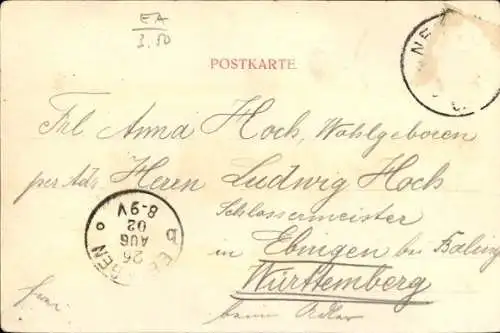 EA
3.50
POSTKARTE
NE
Frl. Anna Hoch, Wohlgeboren
per Adr. Herrn Ludwig Hoch
Schlossermeister
in Ebingen bei Baling
Württemberg
beim Adler
26
AUG
02
8-9V
b